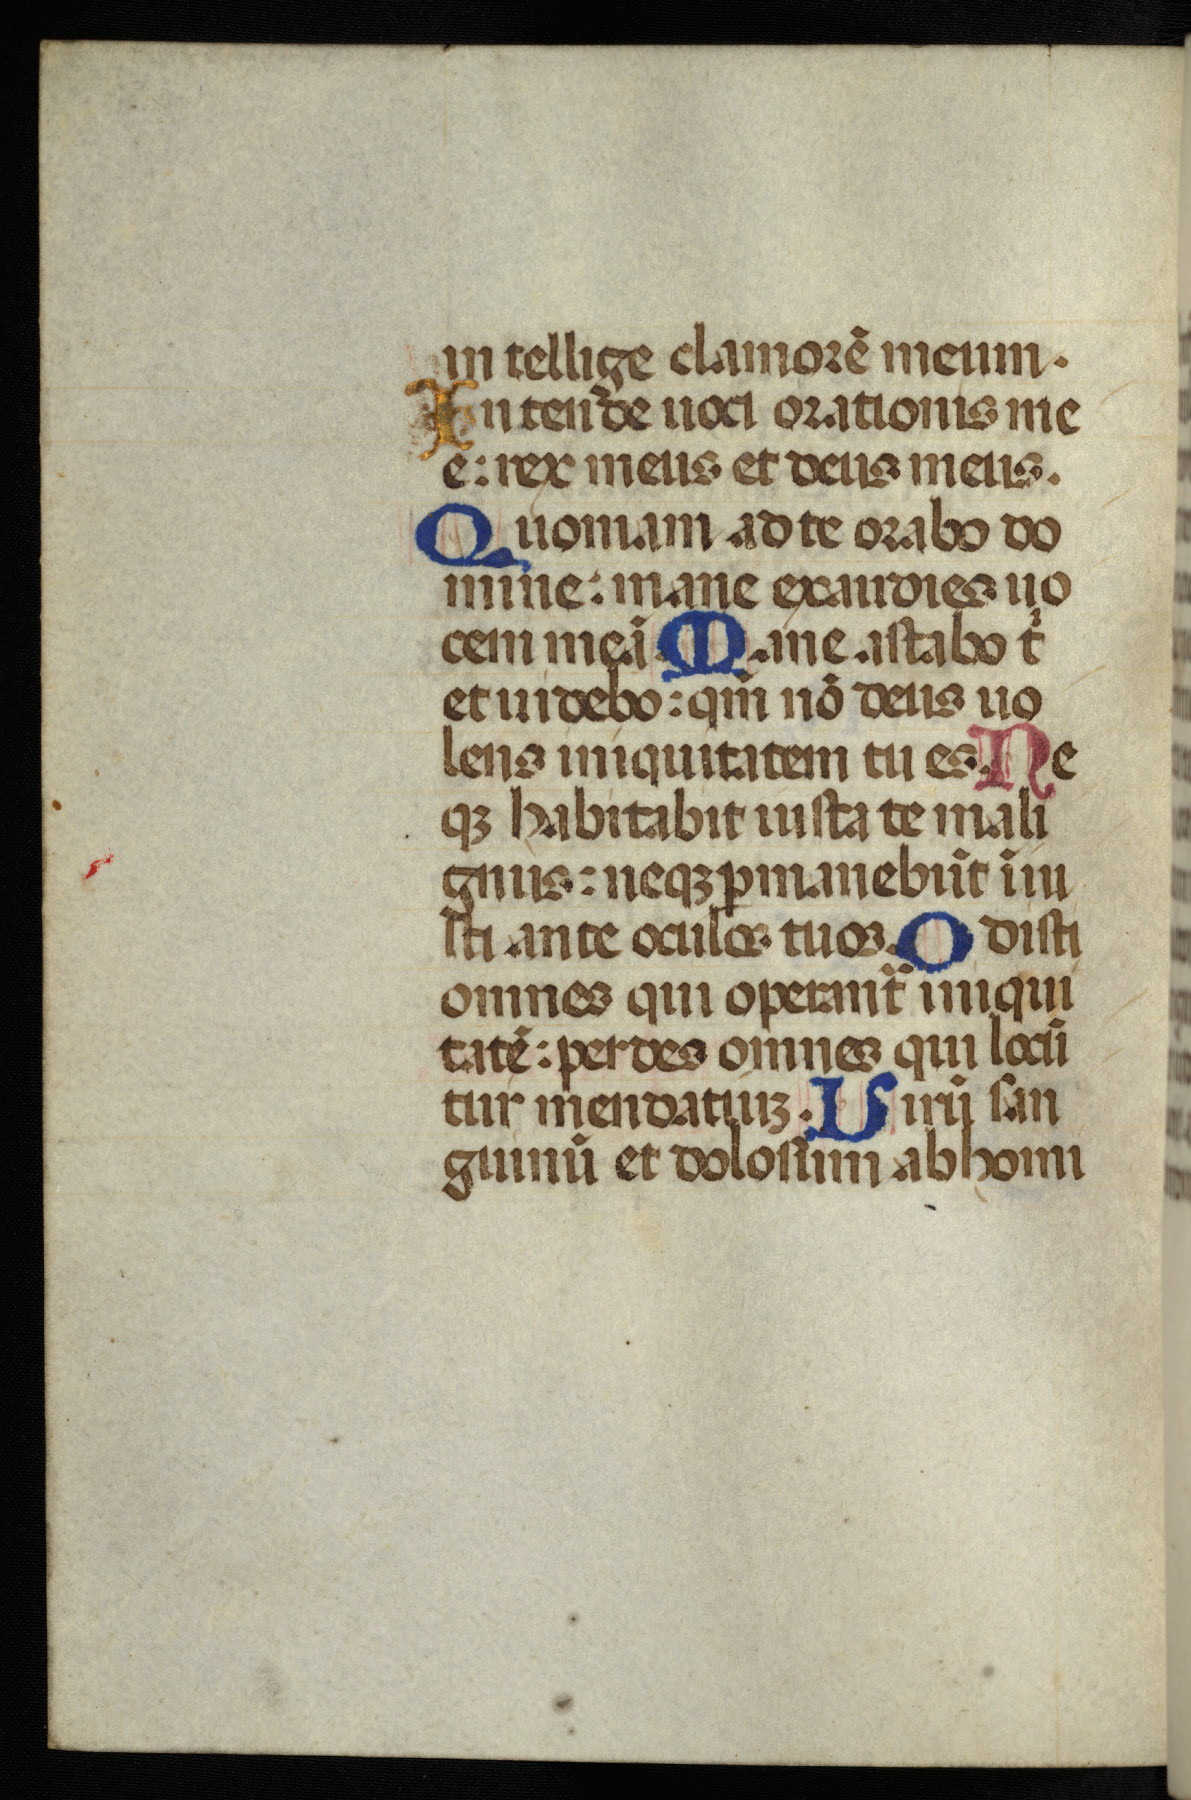 in tellige clamorē meum.
In tende uoci orationis me
e: rex meus et deus meus.
Quoniam ad te orabo do
mine: mane exaudies uo
cem meā. Mane astabo t̄
et uidebo: qm̄ nō deus uo
lens iniquitatem tu es. Ne
qꝫ habitabit iusta te mali
gnus: neqꝫ ꝑmanebūt iniu
sti ante oculos tuos. O disti
omnes qui operant̄ iniqui
tatē: perdes omnes qui locū
tur mendatiuꝫ. Uirū san
guinū et dolosum abhomi